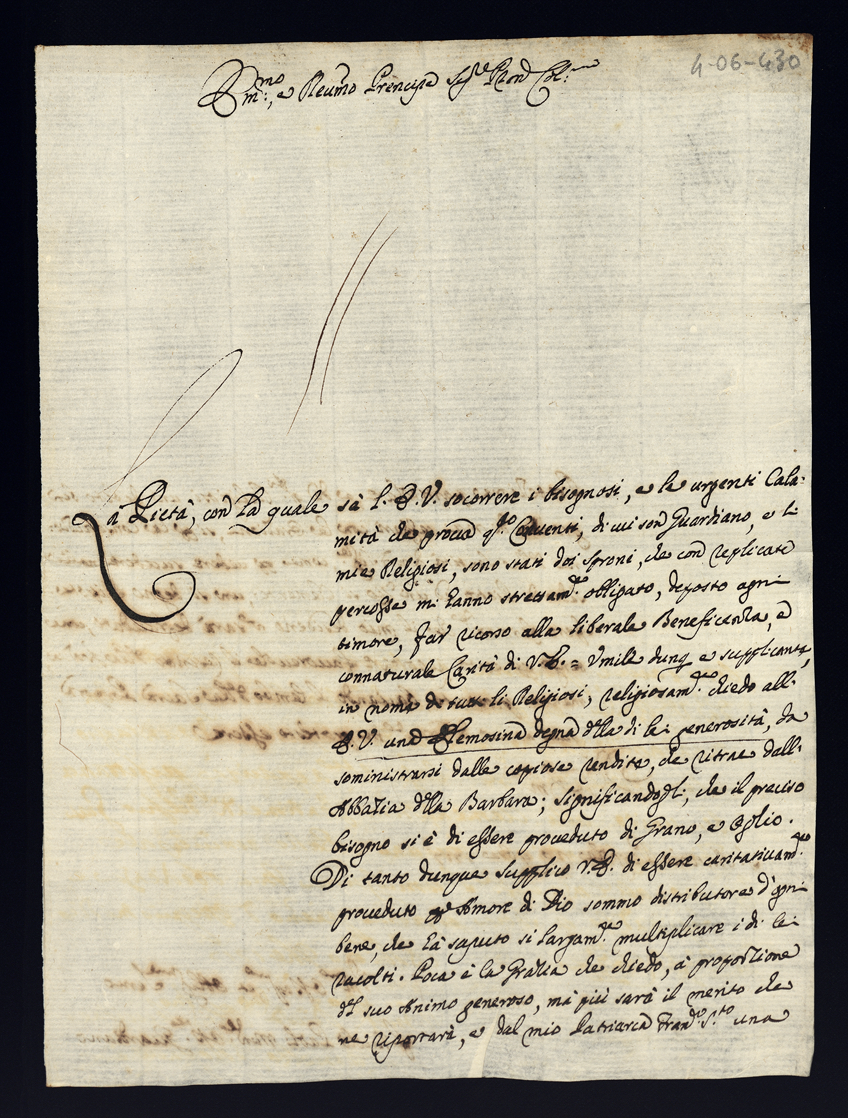 4-06-430
Em.mo, e Reu.mo Prencipe Sig.r Pron Col.mo
La Pietà, con la quale sà l'E.V. socorrere i bisognosi, e le urgenti Cala-
mità che prova q.to Conuento, di cui son Guardiano, e li
miei Religiosi, sono stati doi sproni, che con replicate
percosse mi hanno strettam.te obligato, deposto ogni
timore, far ricorso alla liberale Beneficenza, e
connaturale Carità di V.E. = Umile dunq. e supplicante,
in nome di tutti li Religiosi, religiosam.te chiedo all'
E.V. una Elemosina degna della di lei generosità, da
sominístrarsi dalle copiose rendite, che ritrae dall'
Abbazia della Barbara; significandogli, che il preciso
bisogno si è di essere proveduto di Grano, e Oglio.
Di tanto dunque supplico V.E. di essere caritativam.te
proveduto per Amore di Dio sommo distributore d'ogni
bene, che hà saputo sì largam.te multiplicare i di lei
racolti. Poca è la Grazia che chiedo, à proporzione
del suo Animo generoso, mà più sarà il merito che
ne riporterà, e dal mio Patriarca Fran.co S.to una